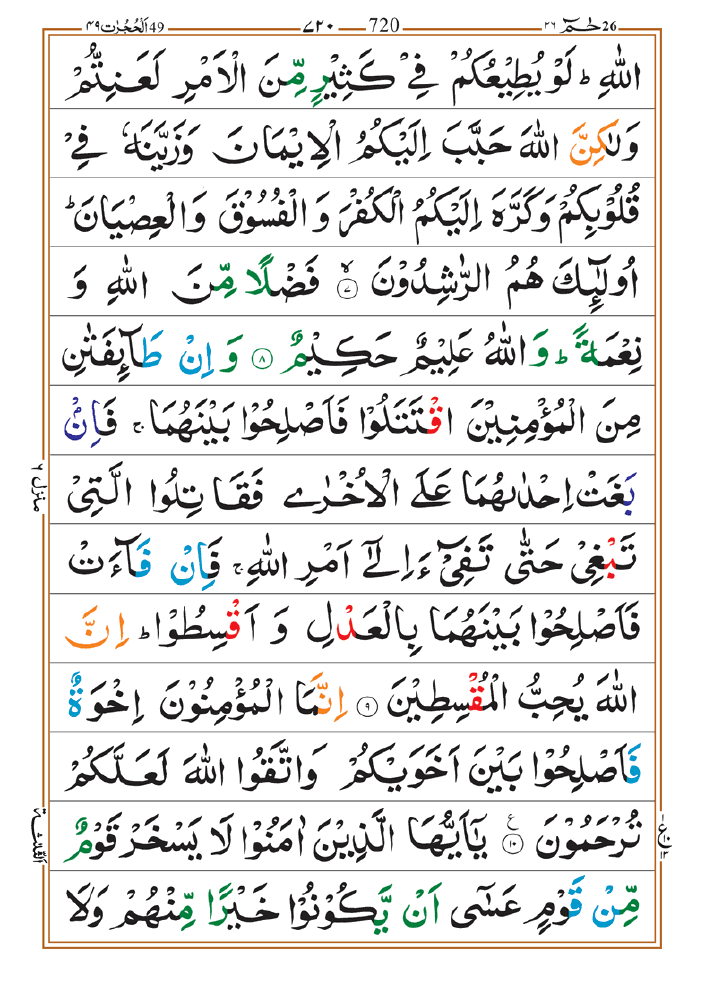 49 اَلْحُجُرٰت ٤٩ 720 ـــ ٧٢٠ 26 حٰمٓ ٢٦
اللّٰهِ ؕ لَوْ يُطِيْعُكُمْ فِيْ كَثِيْرٍ مِّنَ الْاَمْرِ لَعَنِتُّمْ
وَلٰكِنَّ اللّٰهَ حَبَّبَ اِلَيْكُمُ الْاِيْمَانَ وَزَيَّنَهٗ فِيْ
قُلُوْبِكُمْ وَكَرَّهَ اِلَيْكُمُ الْكُفْرَ وَ الْفُسُوْقَ وَالْعِصْيَانَ ؕ
اُولٰٓئِكَ هُمُ الرّٰشِدُوْنَ ۙ ٧ فَضْلًا مِّنَ اللّٰهِ وَ
نِعْمَةً ؕ وَ اللّٰهُ عَلِيْمٌ حَكِيْمٌ ٨ وَ اِنْ طَآىِٕفَتٰنِ
مِنَ الْمُؤْمِنِيْنَ اقْتَتَلُوْا فَاَصْلِحُوْا بَيْنَهُمَا ۚ فَاِنْۢ
بَغَتْ اِحْدٰىهُمَا عَلَى الْاُخْرٰى فَقَاتِلُوا الَّتِيْ
تَبْغِيْ حَتّٰى تَفِيْٓءَ اِلٰٓى اَمْرِ اللّٰهِ ۚ فَاِنْ فَآءَتْ
فَاَصْلِحُوْا بَيْنَهُمَا بِالْعَدْلِ وَ اَقْسِطُوْا ؕ اِنَّ
اللّٰهَ يُحِبُّ الْمُقْسِطِيْنَ ٩ اِنَّمَا الْمُؤْمِنُوْنَ اِخْوَةٌ
فَاَصْلِحُوْا بَيْنَ اَخَوَيْكُمْ وَاتَّقُوا اللّٰهَ لَعَلَّكُمْ
تُرْحَمُوْنَ ١٠ ع يٰٓاَيُّهَا الَّذِيْنَ اٰمَنُوْا لَا يَسْخَرْ قَوْمٌ
مِّنْ قَوْمٍ عَسٰٓى اَنْ يَّكُوْنُوْا خَيْرًا مِّنْهُمْ وَلَا
منزل ٦
الثلٰثة